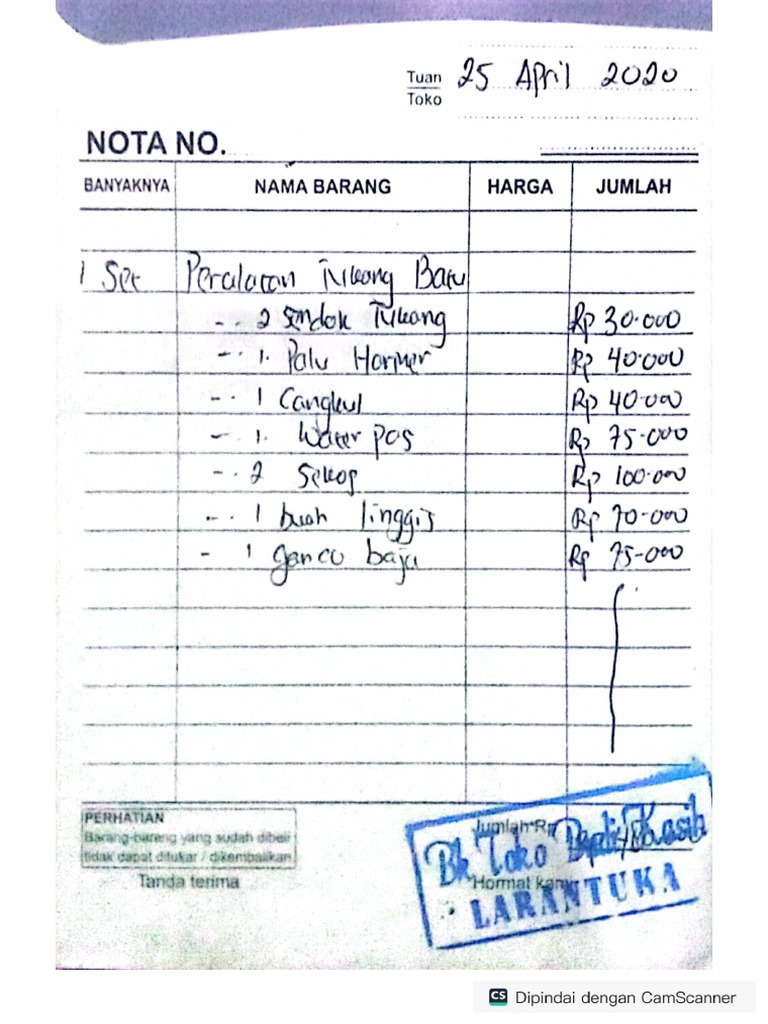 Tuan 25 April 2020
Toko
NOTA NO.
BANYAKNYA NAMA BARANG HARGA JUMLAH
1 Set Peralatan Tukang Batu
- . 2 Sendok Tukang Rp 30.000
- . 1. Palu Hammer Rp 40.000
- . 1 Cangkul Rp 40.000
- . 1. Water pos Rp 75.000
- . 2 Sekop Rp 100.000
- . 1 buah linggis Rp 70.000
- 1 ganco baja Rp 75.000
PERHATIAN
Barang-barang yang sudah dibeli
tidak dapat ditukar / dikembalikan
Tanda terima
Jumlah Rp
Toko Kasih
Hormat kami
LARANTUKA
CS Dipindai dengan CamScanner